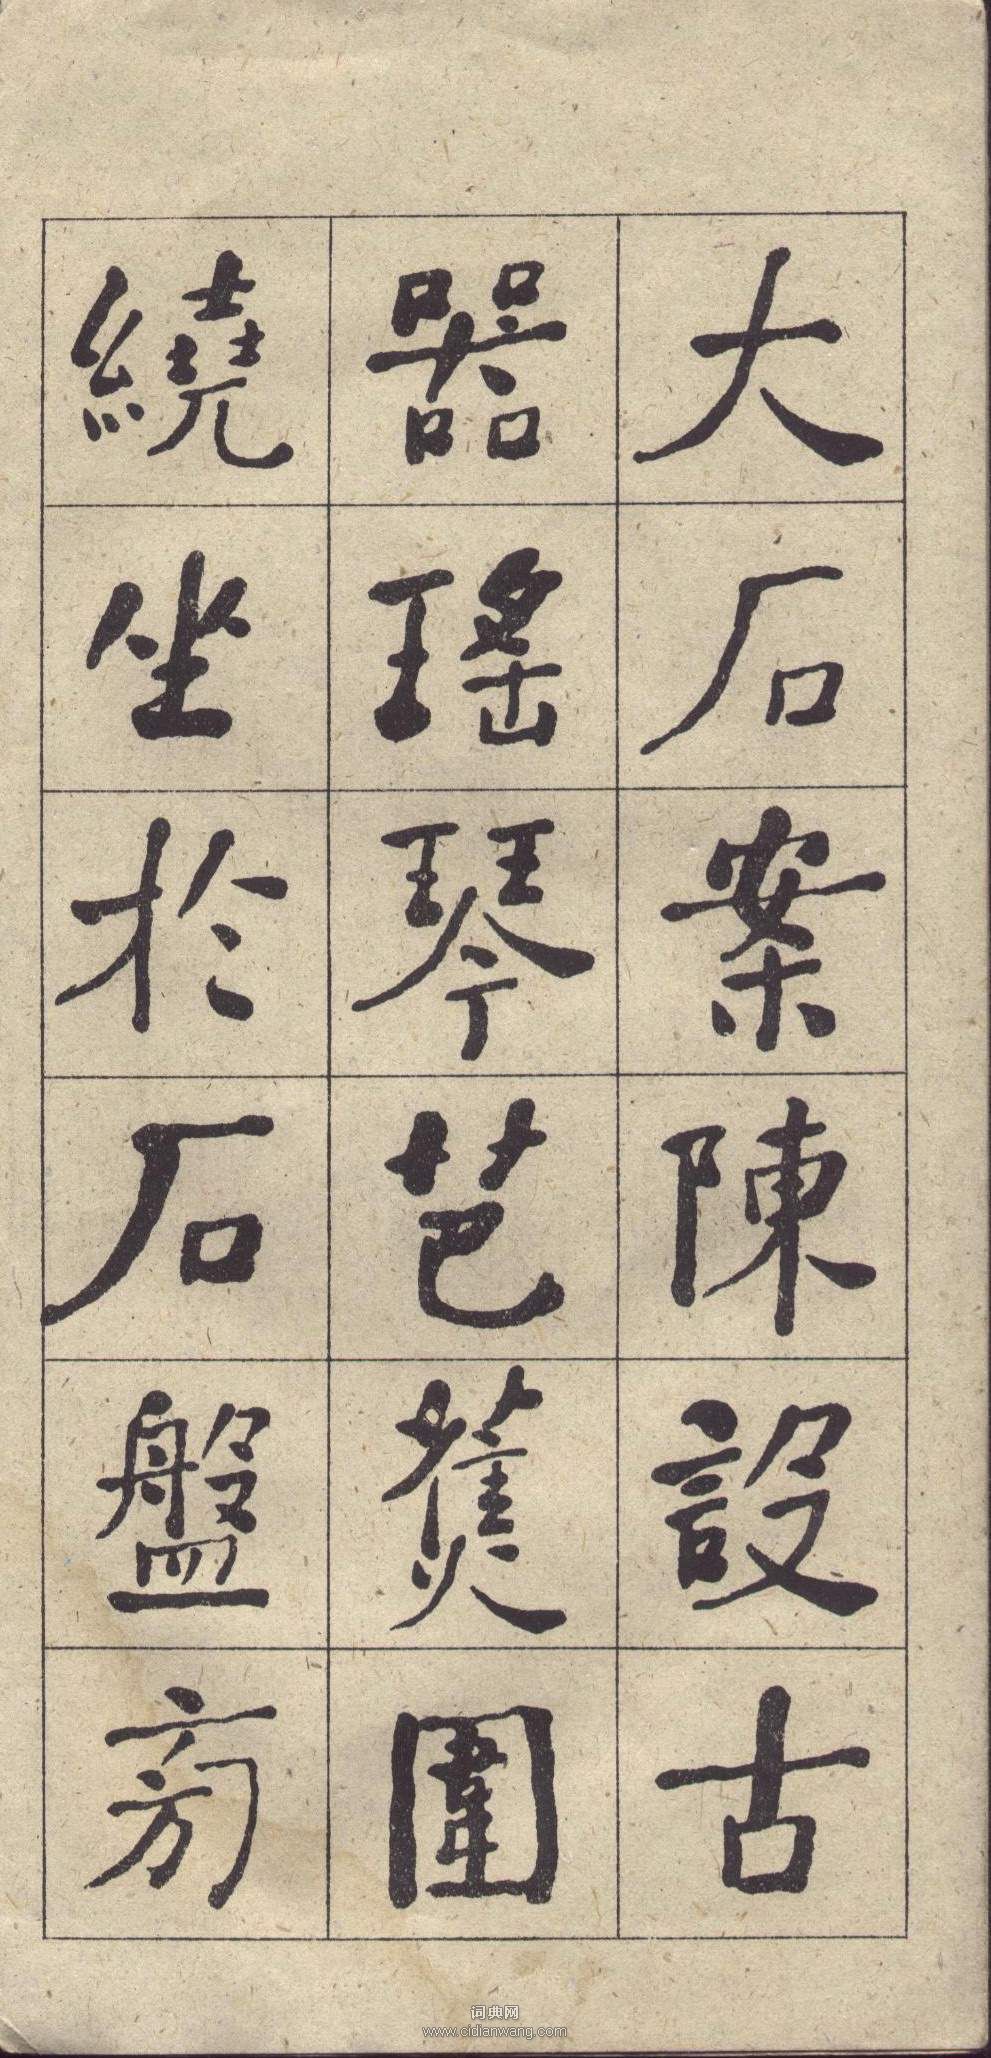 大石案陳設古
器瑤琴芭蕉圍
繞坐於石盤旁
词典网
www.cidianwang.com